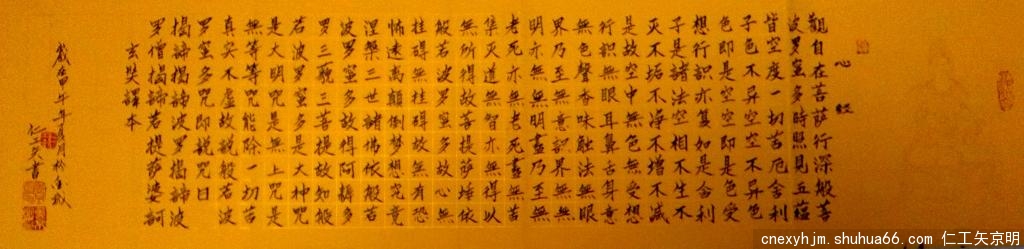 心經
觀自在菩萨行深般若
波罗蜜多時照見五蘊
皆空度一切苦厄舍利
子色不异空空不异色
色即是空空即是色受
想行識亦复如是舍利
子是諸法空相不生不
灭不垢不净不增不减
是故空中無色無受想
行識無眼耳鼻舌身意
無色聲香味触法無眼
界乃至無意識界無無
明亦無無明盡乃至無
老死亦無老死盡無苦
集灭道無智亦無得以
無所得故菩提萨埵依
般若波罗蜜多故心無
挂碍無挂碍故無有恐
怖遠离顛倒梦想究竟
涅槃三世諸佛依般若
波罗蜜多故得阿耨多
罗三藐三菩提故知般
若波罗蜜多是大神咒
是大明咒是無上咒是
無等等咒能除一切苦
真实不虚故說般若波
罗蜜多咒即說咒曰
揭諦揭諦波罗揭諦波
罗僧揭諦菩提萨婆訶
玄奘譯本
歲在甲午年月於
仁工矢書
cnexyhjm.shuhua66.com@仁工矢京明